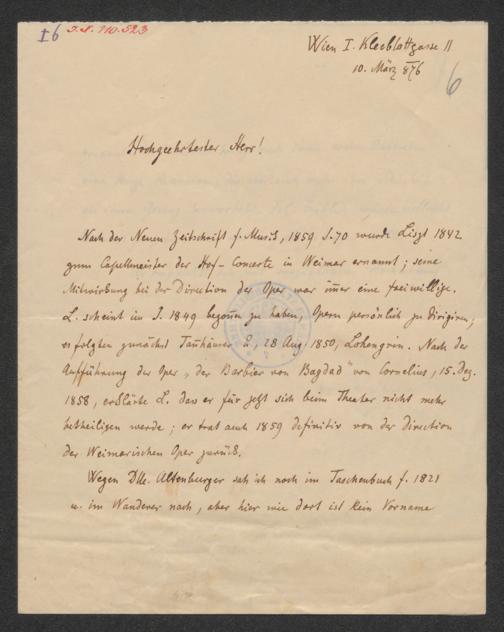 I6 J.N. 110.523
Wien I. Kleeblattgasse 11
10. März 876
6
Hochgeehrtester Herr!
Nach der Neuen Zeitschrift f. Musik, 1859 S. 70 wurde Liszt 1842
zum Capellmeister der Hof-Concerte in Weimar ernannt; seine
Mitwirkung bei der Direction der Oper war immer eine freiwillige.
L. scheint im J. 1849 begonnen zu haben, Opern persönlich zu dirigiren;
es folgten zunächst Tanhäuser u. 28 Aug. 1850, Lohengrin. Nach der
Aufführung der Oper „der Barbier von Bagdad" von Cornelius, 15. Dez.
1858, erklärte L. dass er für jetzt sich beim Theater nicht mehr
betheiligen werde; er trat auch 1859 definitiv von der Direction
der Weimarischen Oper zurück.
Wegen Dlle. Altenburger sah ich noch im Taschenbuch f. 1821
u. im Wanderer nach, aber hier wie dort ist kein Vorname